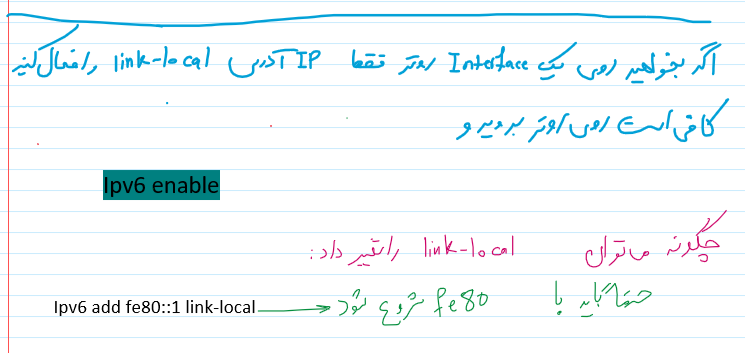 اگر بخواهید روی یک Interface روتر فقط IP آدرس link-local را فعال کنید
کافی است روی روتر بروید و
Ipv6 enable
چگونه میتوان link-local را تغییر داد:
حتما باید با fe80 شروع شود
Ipv6 add fe80::1 link-local